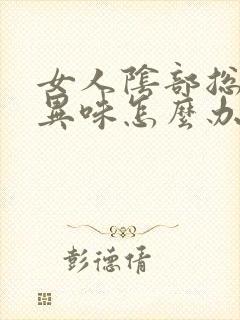 女人陰部總
異味怎麼办
彭德倩